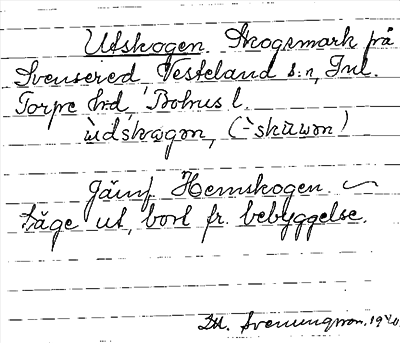 Utskogen. Skogsmark på
Svensered, Västeland s:n, Inl.
Torpe hrd, Bohus l.
ùdskωgən, (-̀skūwən)
Jämf Hemskogen. ~
Läge ut, bort fr. bebyggelse.
D.H. Svenungsson. 1940.